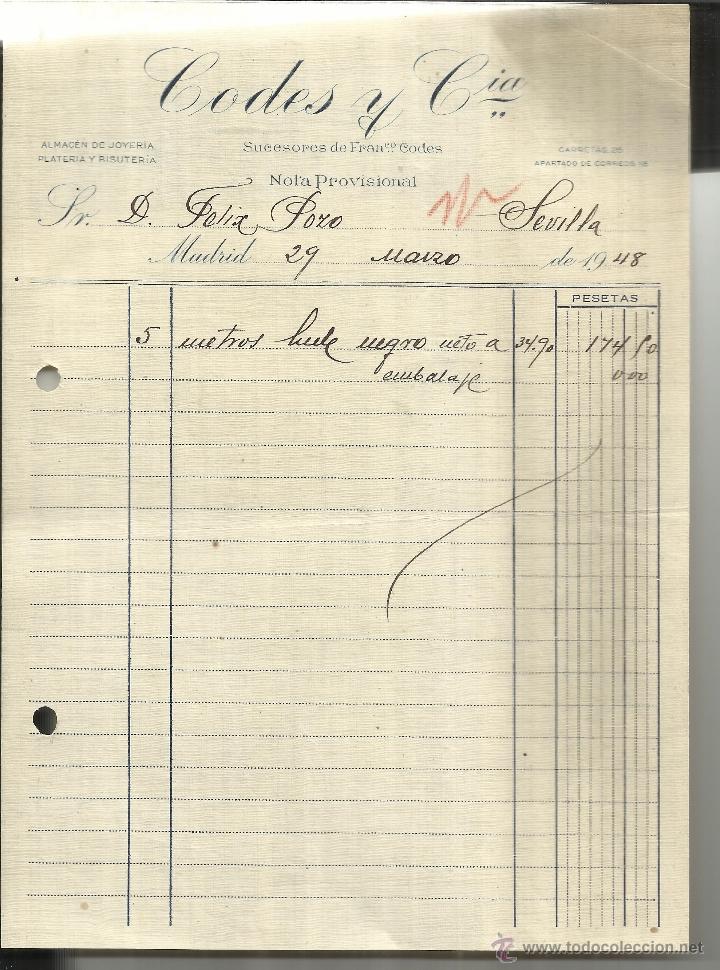 Codes y Cia
ALMACÉN DE JOYERÍA, PLATERÍA Y BISUTERÍA
Sucesores de Franco Codes
CARRETAS, 25
APARTADO DE CORREOS
Nota Provisional
Sr. D. Felix Pozo Sevilla
Madrid 29 Marzo de 1948
PESETAS
5 metros hule negro neto a 34.90 174 50
embalaje 0.00
www.todocoleccion.net